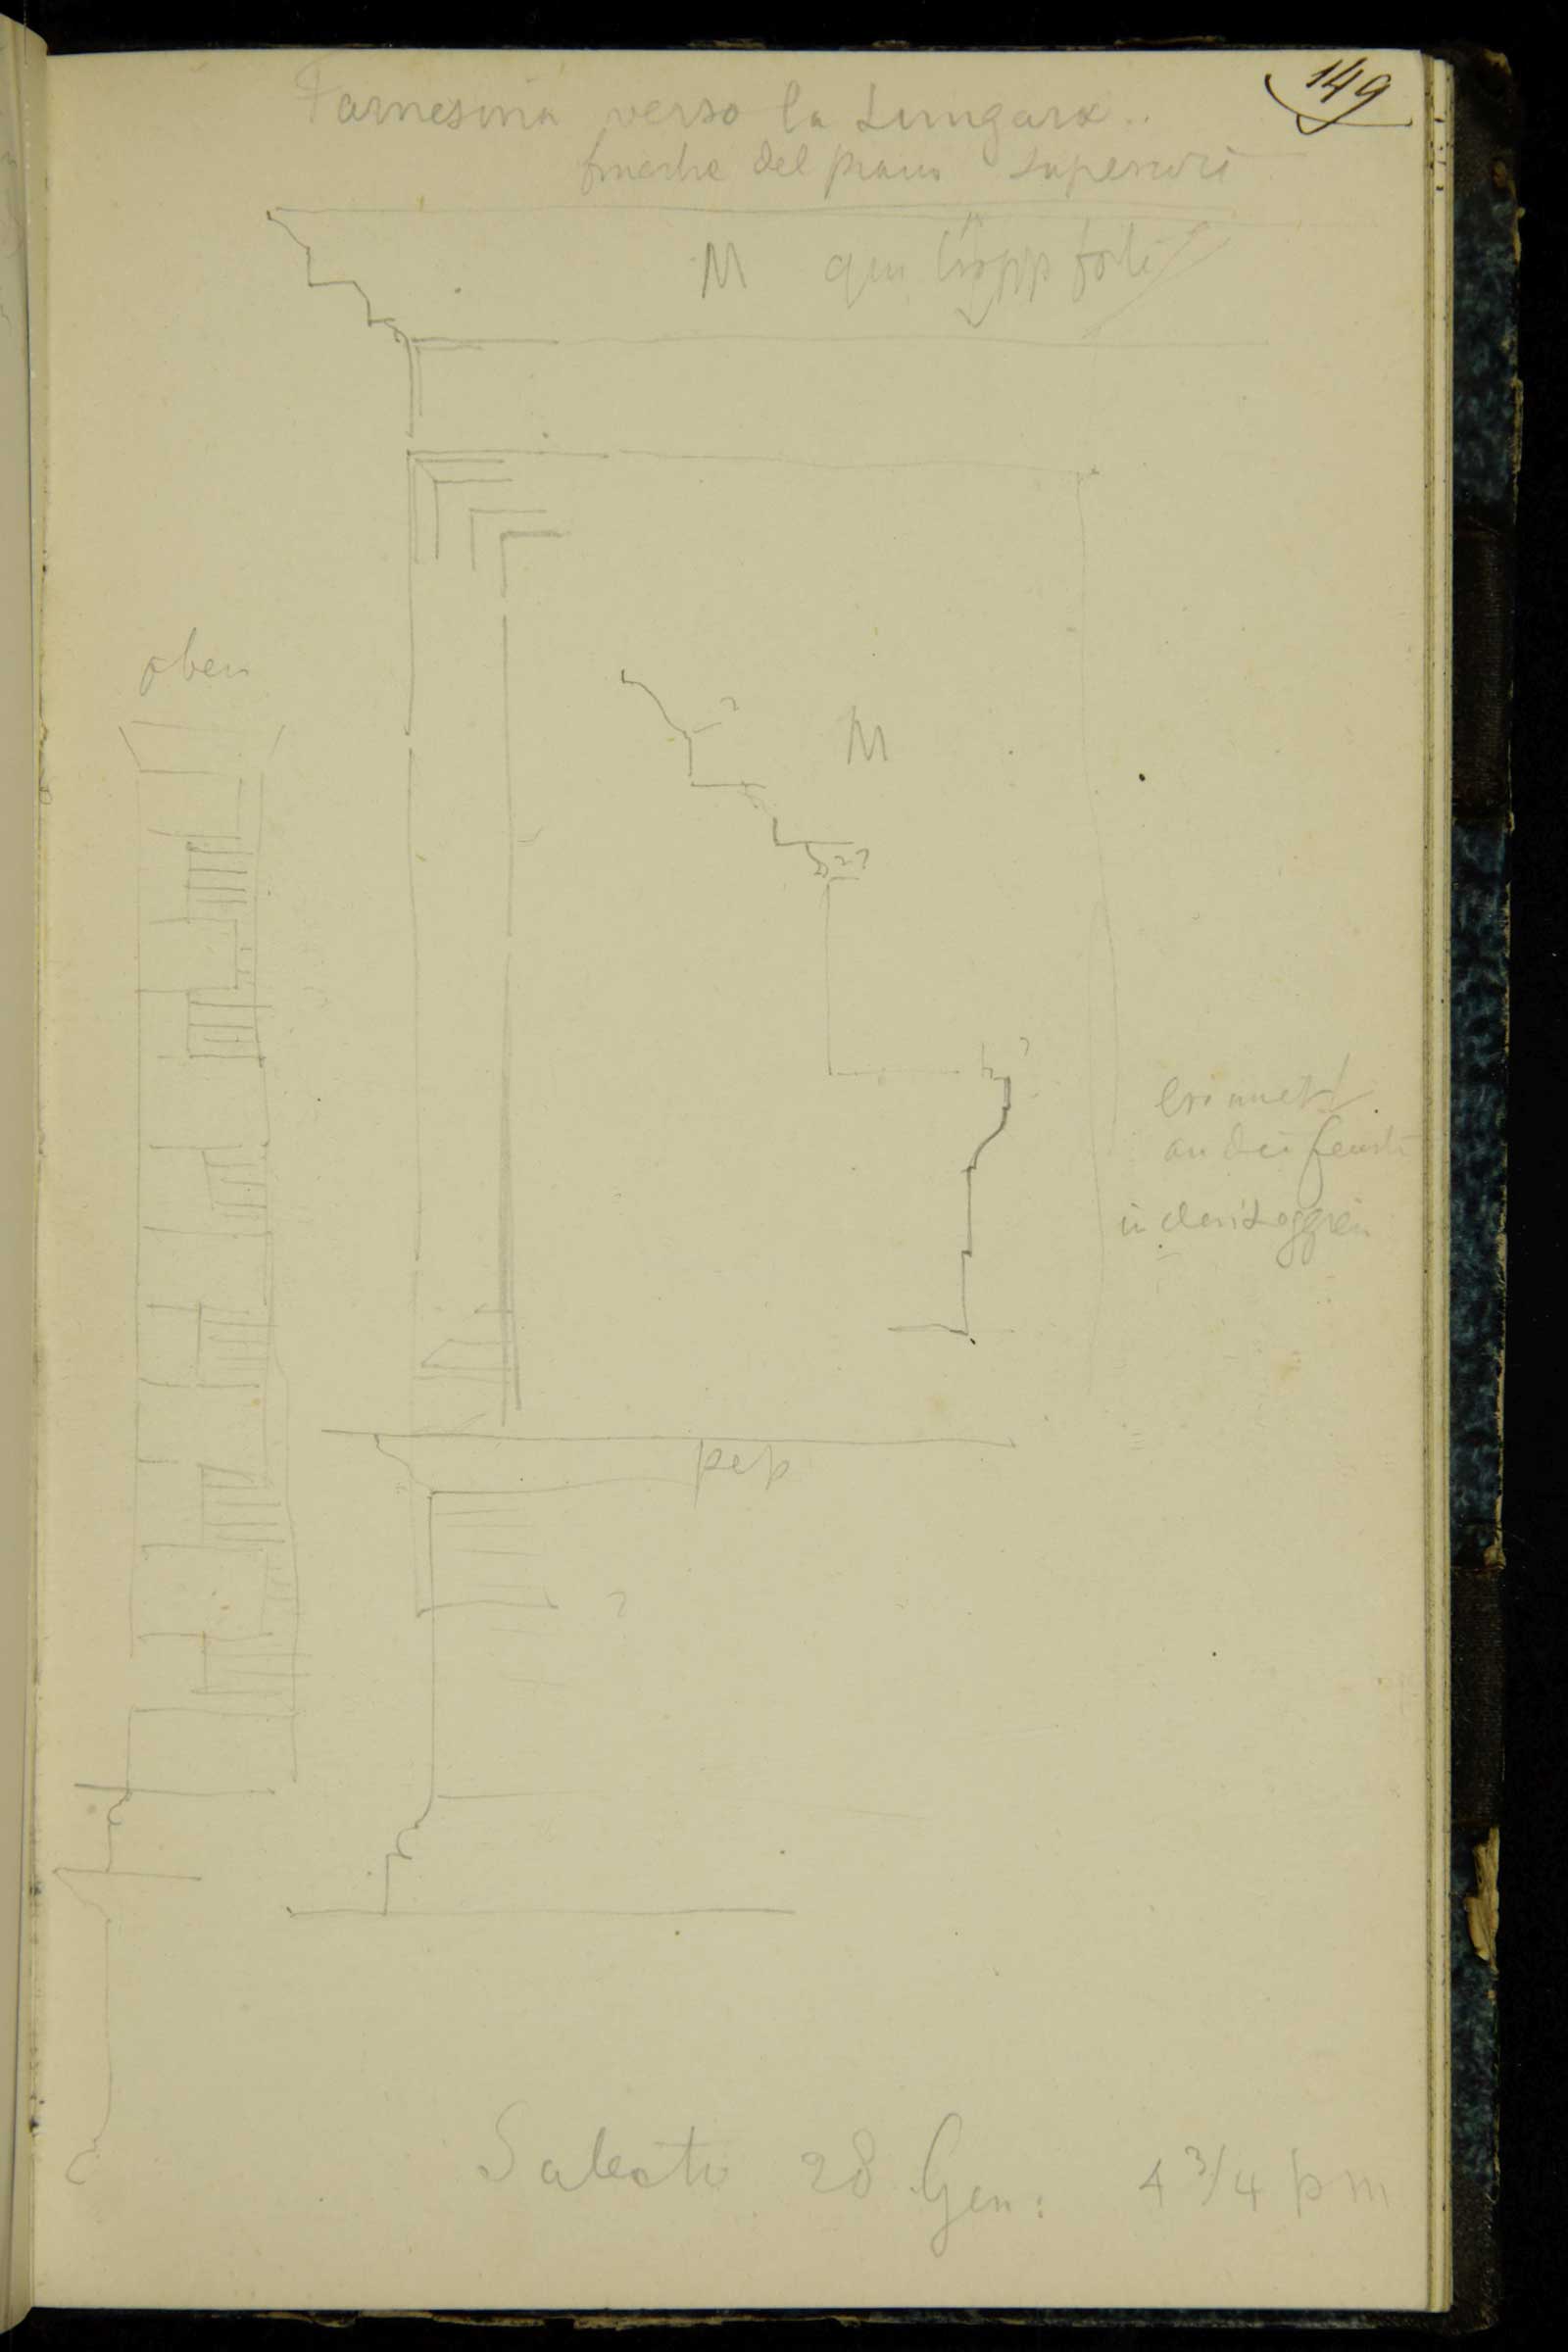 149
Farnesina verso la Lungara..
finestre del piano superiore
M qui tropp forte
oben
?
M
??
?
erinnert
an die fenster
in den Loggien
pep
?
Sabato 28 Gen: 4 3/4 pm